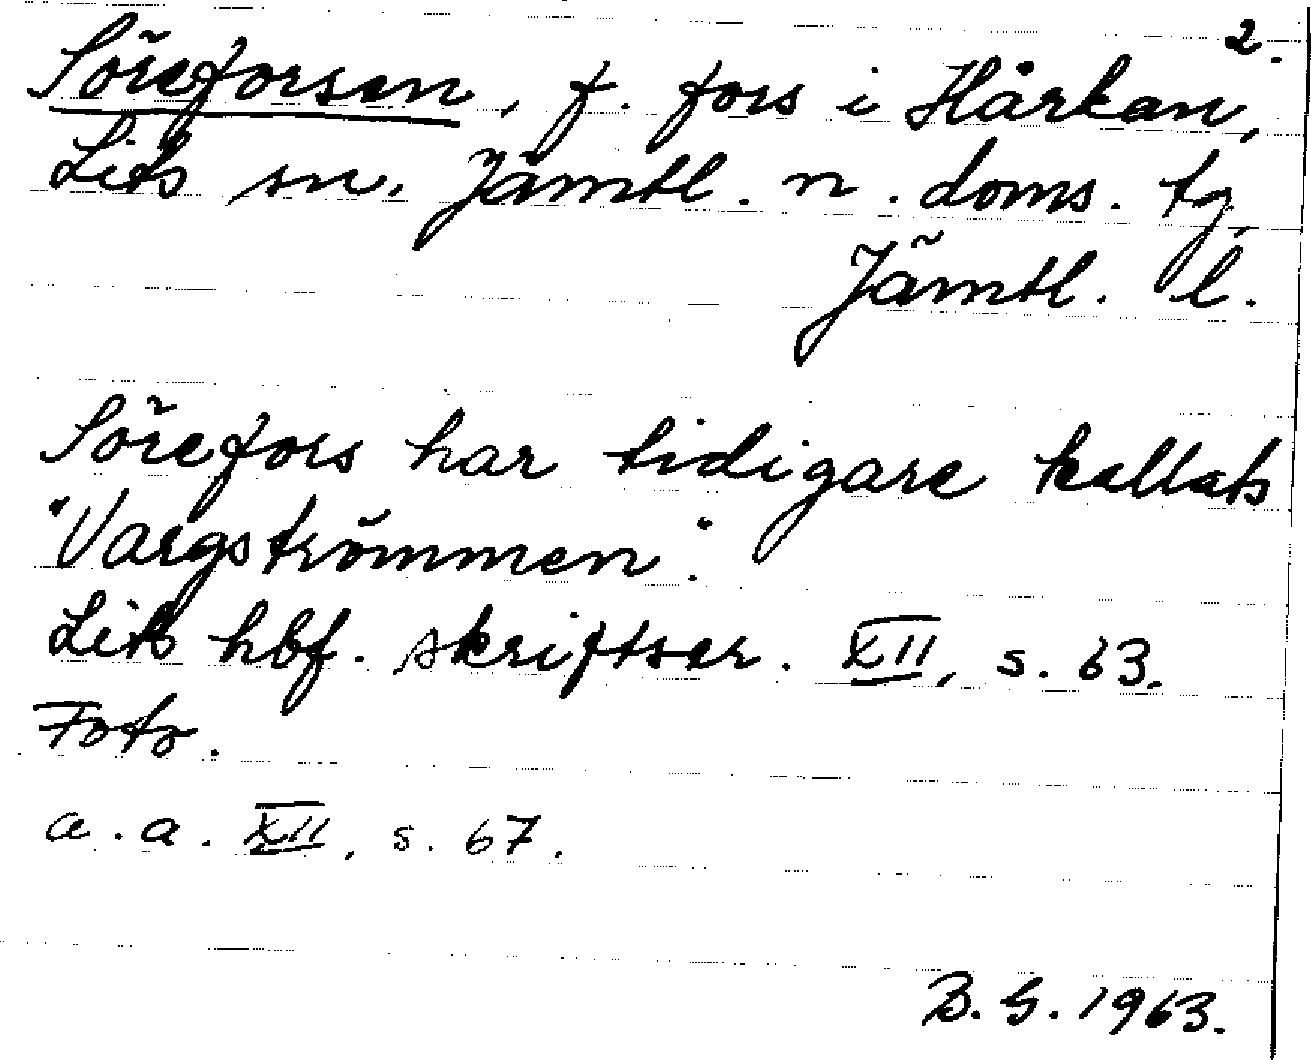 2.
Söreforsen, f. fors i Hårkan,
Lits sn. Jämtl. n. doms. tg,
Jämtl. l.
Sörefors har tidigare kallats
"Vargströmmen".
Lits hbf. skriftser. XII, s. 63.
Foto.
a. a. XII, s. 67.
B. G. 1963.